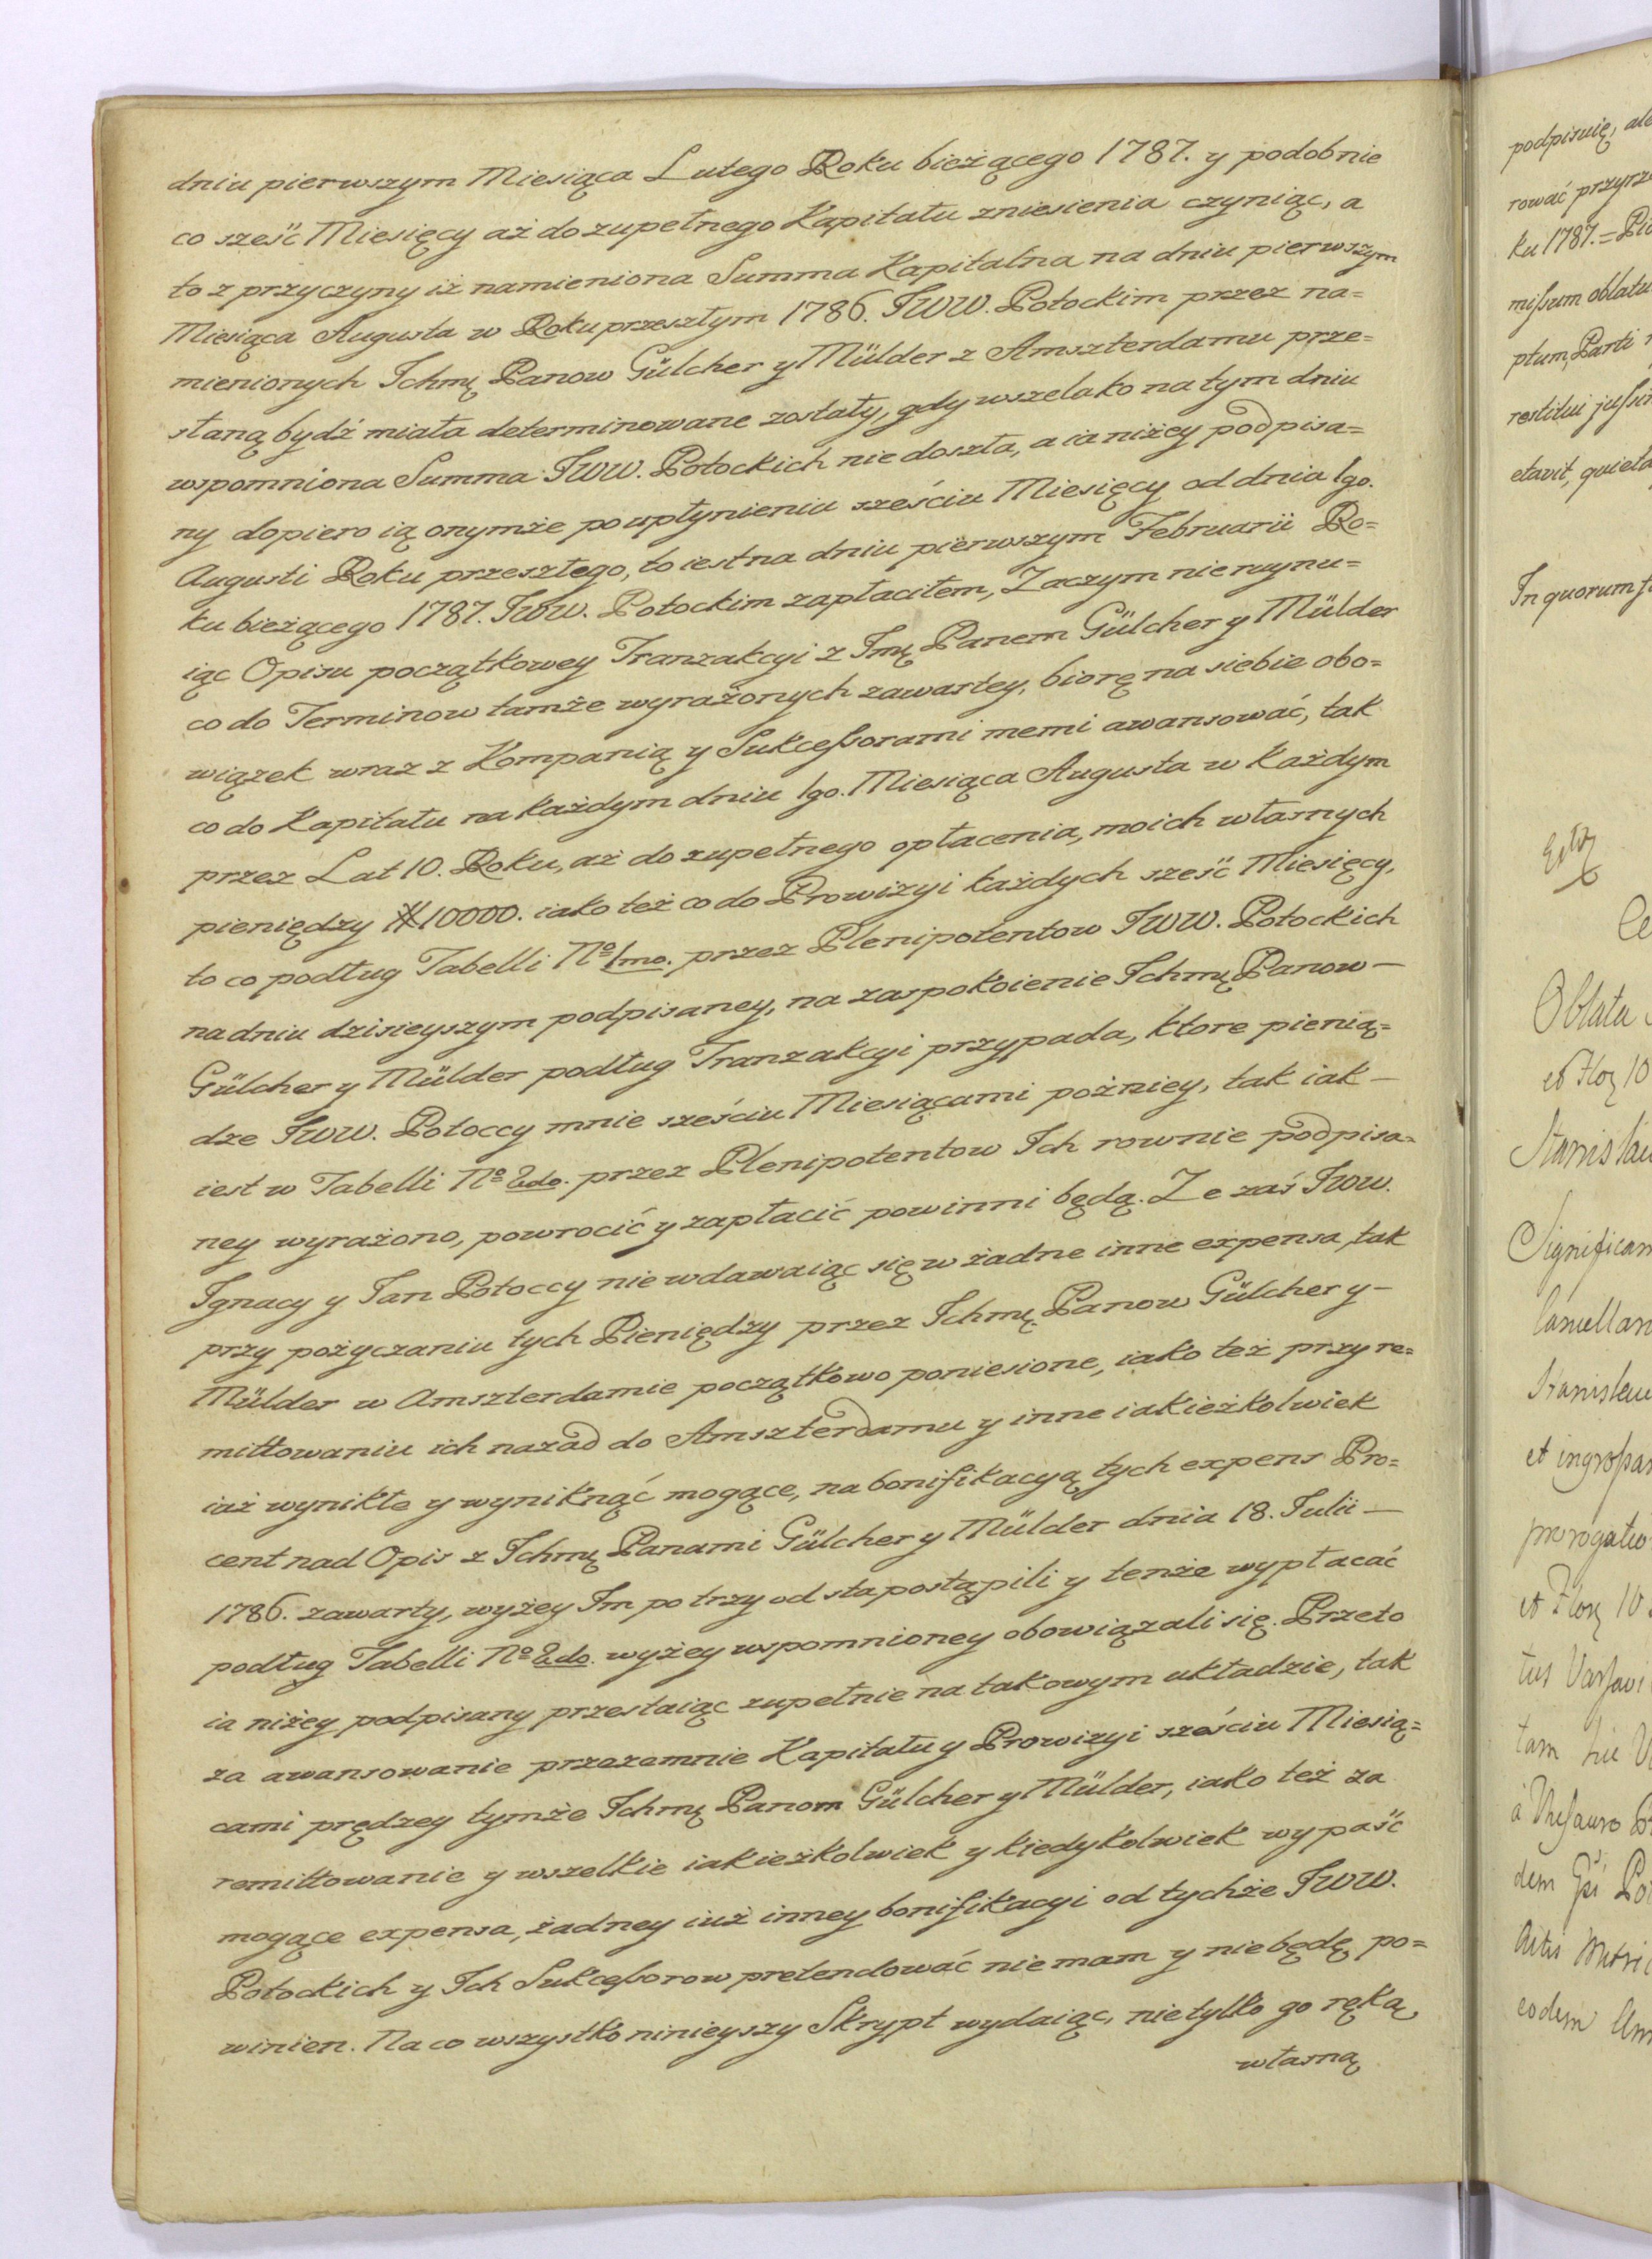 dniu pierwszym Miesiąca Lutego Roku bieżącego 1787. y podobnie
co sześć Miesięcy aż do zupełnego Kapitału zniesienia czyniąc, a
to z przyczyny iż namieniona Summa Kapitalna na dniu pierwszym
Miesiąca Augusta w Roku przeszłym 1786. JWW. Potockim przez na=
mienionych Ichmę Panow Gülcher y Mülder z Amszterdamu prze=
słaną bydź miała determinowane zostały, gdy wszelako na tym dniu
wspomniona Summa JWW. Potockich nie doszła, a ia niżey podpisa=
ny dopiero ią onymże po upłynieniu sześciu Miesięcy od dnia 1go.
Augusti Roku przeszłego, to iest na dniu pierwszym Februarii Ro=
ku bieżącego 1787. JWW. Potockim zapłaciłem, Zaczym nie ruynu=
iąc Opisu początkowey Tranzakcyi z Jmę Panem Gülcher y Mülder
co do Terminow tamże wyrażonych zawartey, biorę na siebie obo=
wiązek wraz z Kompanią y Sukceßorami memi awansować, tak
co do Kapitału na każdym dniu 1go. Miesiąca Augusta w każdym
przez Lat 10. Roku, aż do zupełnego opłacenia, moich własnych
pieniędzy # 10000. iako też co do Prowizyi każdych sześć Miesięcy,
to co podług Tabelli No 1mo. przez Plenipotentow JWW. Potockich
na dniu dzisieyszym podpisaney, na zaspokoienie Ichmę Panow —
Gülcher y Mülder podług Tranzakcyi przypada, ktore pienią=
dze JWW. Potoccy mnie sześciu Miesiącami poźniey, tak iak —
iest w Tabelli No 2do. przez Plenipotentow Ich rownie podpisa=
ney wyrażono, powrocić y zapłacić powinni będą. Ze zaś JWW.
Ignacy y Jan Potoccy nie wdawaiąc się w żadne inne expensa, tak
przy pożyczaniu tych Pieniędzy przez Ichmę Panow Gülcher y —
Mülder w Amszterdamie początkowo poniesione, iako też przy re=
mittowaniu ich nazad do Amszterdamu y inne iakieżkolwiek
iuż wynikłe y wyniknąć mogące, na bonifikacyą tych expens Pro=
cent nad Opis z Ichmę Panami Gülcher y Mülder dnia 18. Julii —
1786. zawarty, wyżey Im po trzy od sta postąpili y tenże wypłacać
podług Tabelli No 2do. wyżey wspomnioney obowiązali się. Przeto
ia niżey podpisany przestaiąc zupełnie na takowym układzie, tak
za awansowanie przezemnie Kapitału y Prowizyi sześciu Miesią=
cami prędzey tymże Ichmę Panom Gülcher y Mülder, iako też za
remittowanie y wszelkie iakieżkolwiek y kiedykolwiek wypaść
mogące expensa, żadney iuż inney bonifikacyi od tychże JWW.
Potockich y Ich Sukceßorow pretendować nie mam y nie będę po=
winien. Na co wszystko ninieyszy Skrypt wydaiąc, nie tylko go ręką,
własną
podpisuię, ale
rować przyrze
ku 1787. = Pio
mißum oblatu
ptum, Parti
restitui jußi
etavit, quieta
In quorum f
Oblata
et Flor 10
Stanislau
Significam
Cancellar
Stanislau
et ingroßar
prorogatio
et Flor 10
tus Varsavi
tam
à Thesauro
dem
Actis Metric
eodem Ann